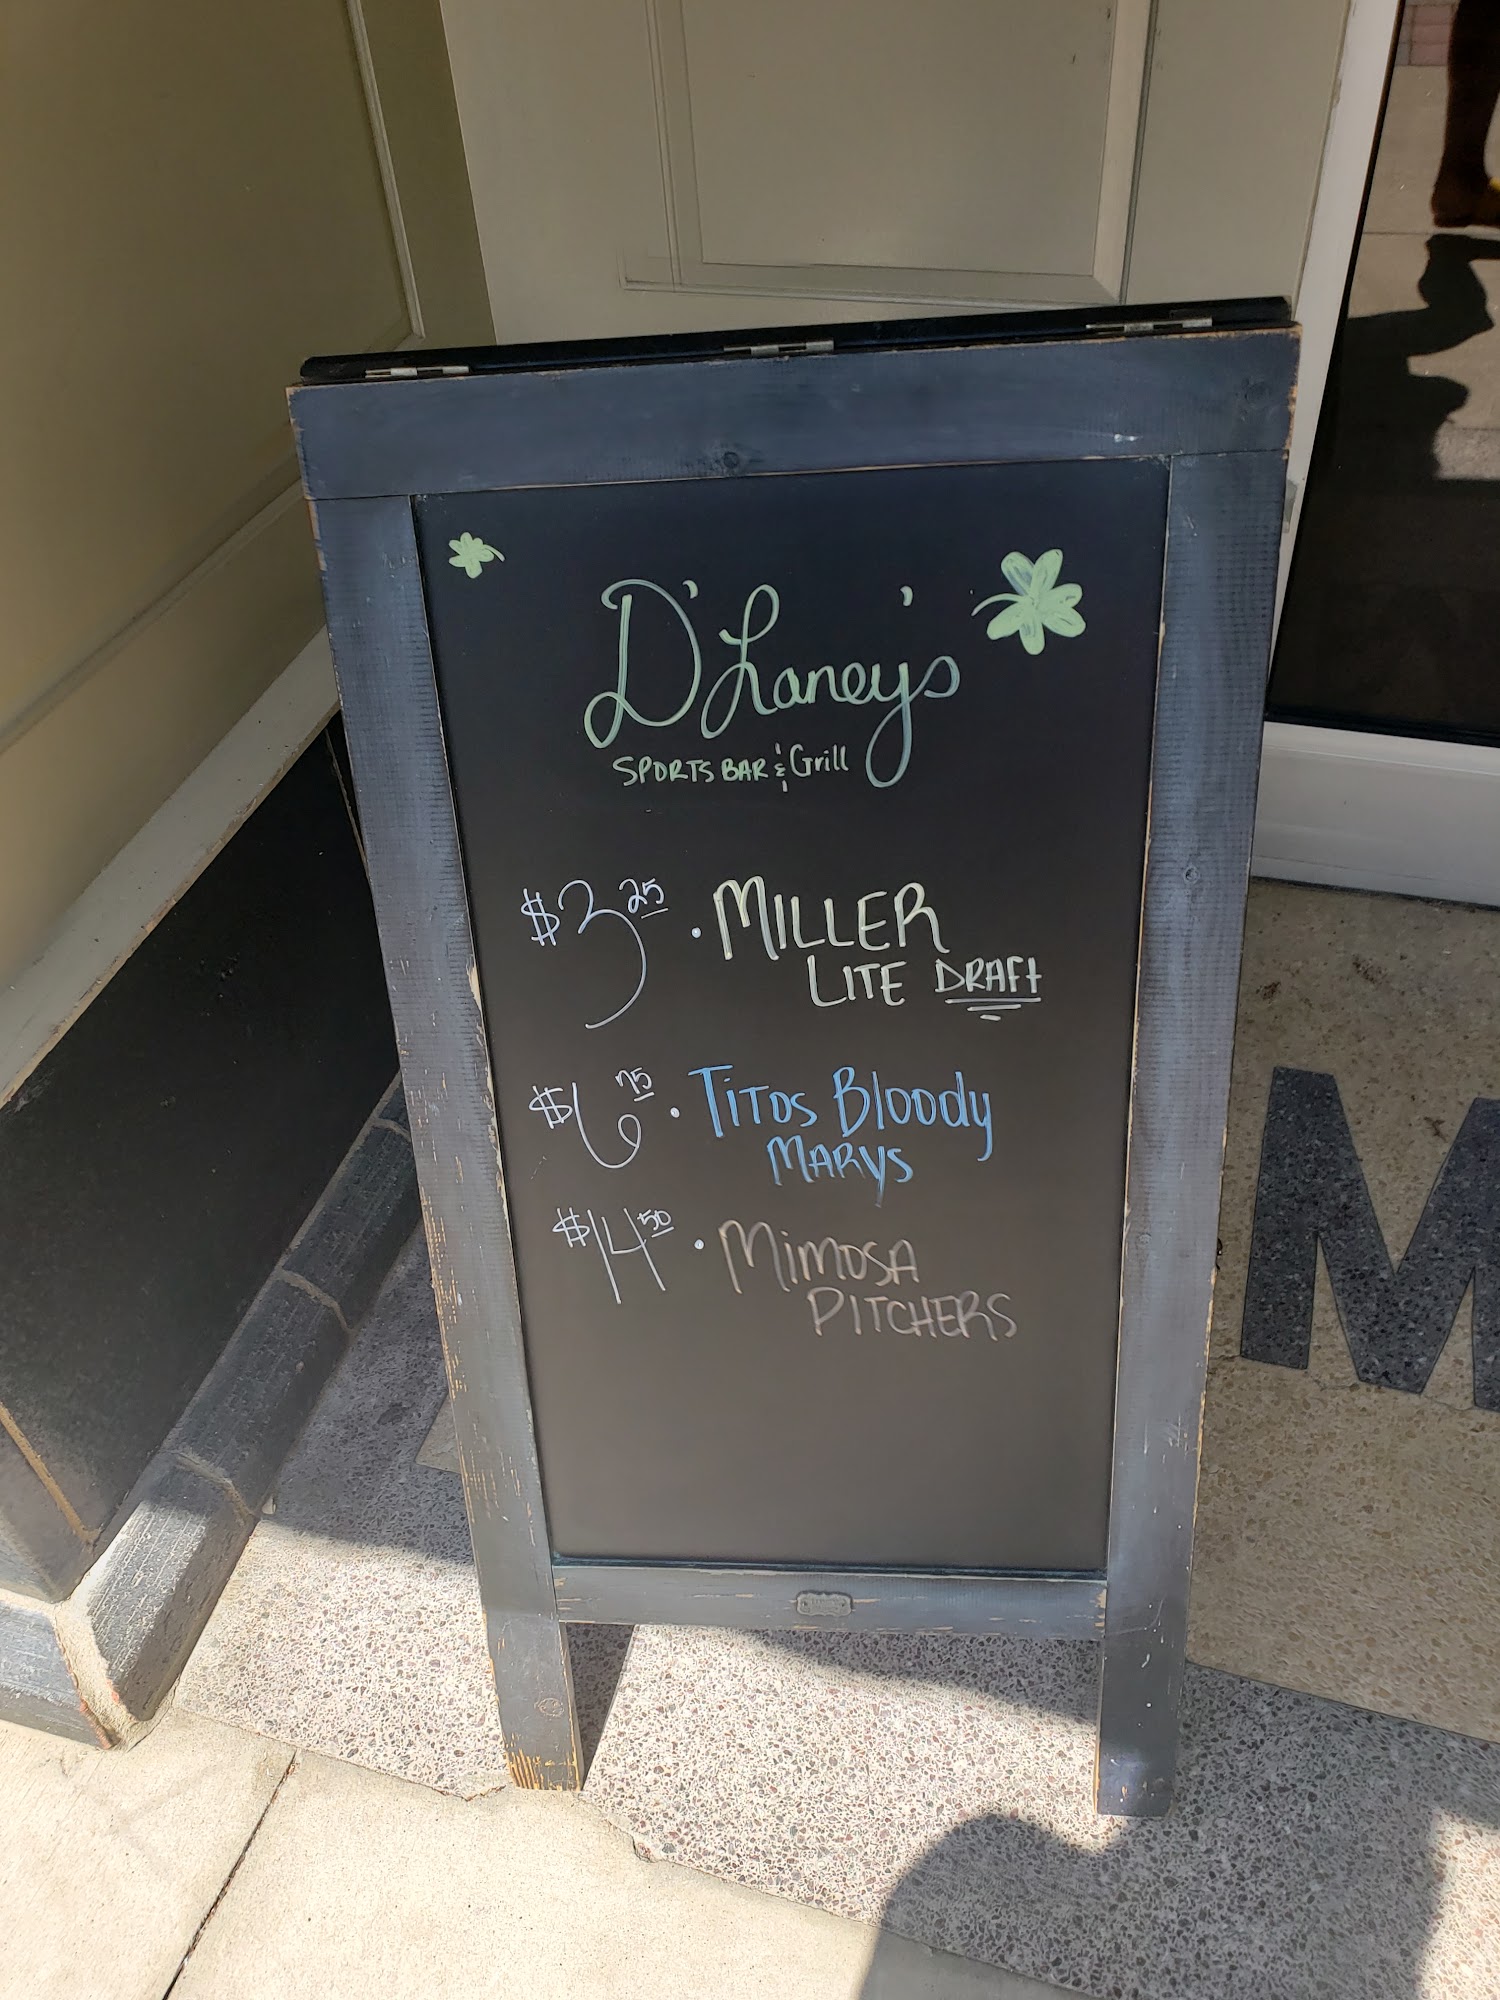 D'Laney's
SPORTS BAR & Grill
$3.25 · MILLER
LITE DRAFT
$6.75 · TITOS Bloody
MARYS
$14.50 · MIMOSA
PITCHERS
M